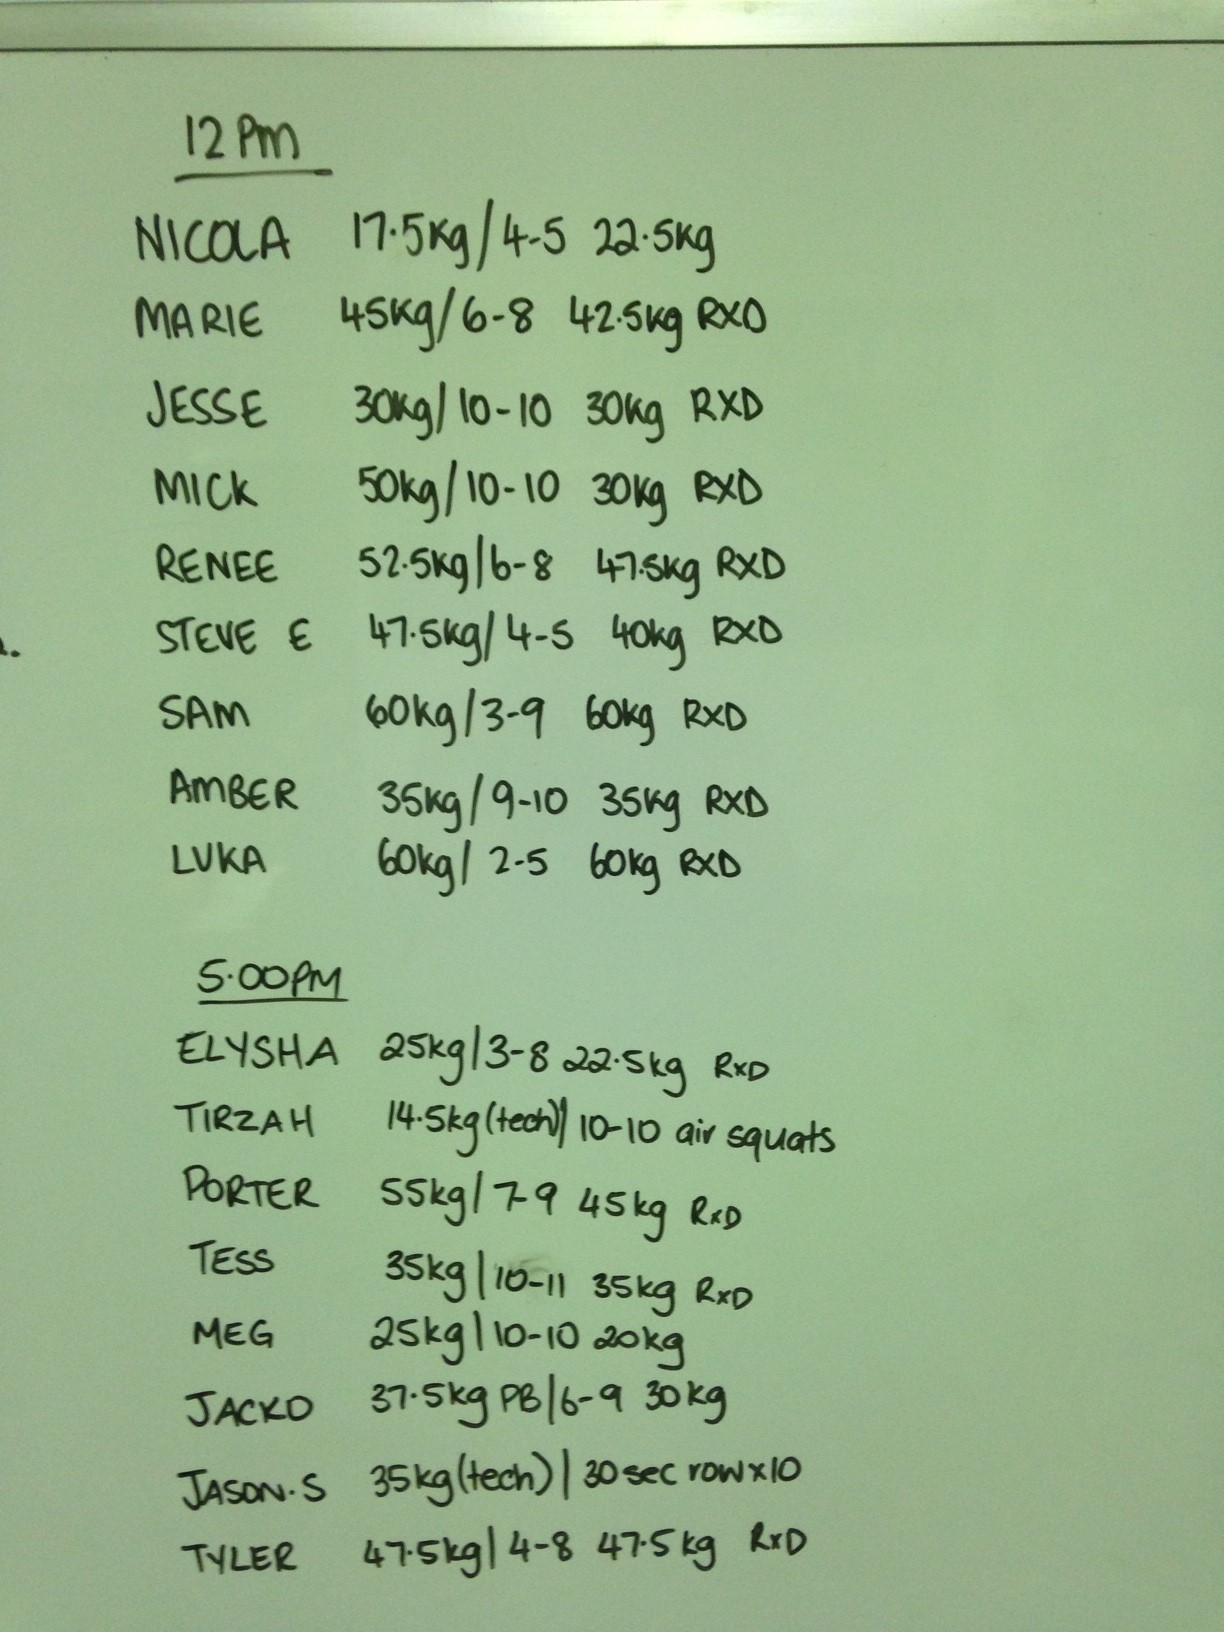 12 Pm
NICOLA 17.5kg/4-5 22.5kg
MARIE 45kg/6-8 42.5kg RXD
JESSE 30kg/10-10 30kg RXD
MICK 50kg/10-10 30kg RXD
RENEE 52.5kg/6-8 47.5kg RXD
STEVE E 47.5kg/4-5 40kg RXD
SAM 60kg/3-9 60kg RXD
AMBER 35kg/9-10 35kg RXD
LUKA 60kg/2-5 60kg RXD
5.00PM
ELYSHA 25kg/3-8 22.5kg RxD
TIRZAH 14.5kg(tech)/10-10 air squats
PORTER 55kg/7-9 45kg RxD
TESS 35kg/10-11 35kg RxD
MEG 25kg/10-10 20kg
JACKO 37.5kg PB/6-9 30kg
JASON.S 35kg(tech)/30sec rowx10
TYLER 47.5kg/4-8 47.5kg RxD